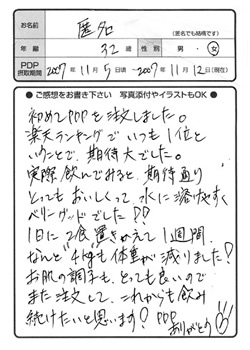 お名前 匿名 (匿名でも結構です)
年齢 32歳 性別 男・女
PDP摂取期間 2007年11月5日頃~2007年11月12日(現在)
●ご感想をお書き下さい 写真添付やイラストもOK●
初めてPDPを注文しました。
楽天ランキングでいつも1位と
いうことで、期待大でした。
実際飲んでみると、期待通り
とってもおいしくって、水に溶けやすく
ベリーグッドでした!!
1日に2食置きかえて1週間、
なんと"4kg"も体重が減りました!
お肌の調子も、とっても良いので
また注文して、これからも飲み
続けたいと思います! PDP
ありがとう